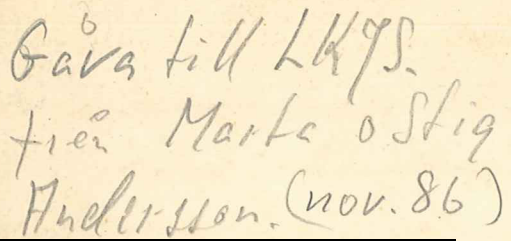 Gåva till LKJS.
från Marta o Stig
Andersson. (nov. 86)